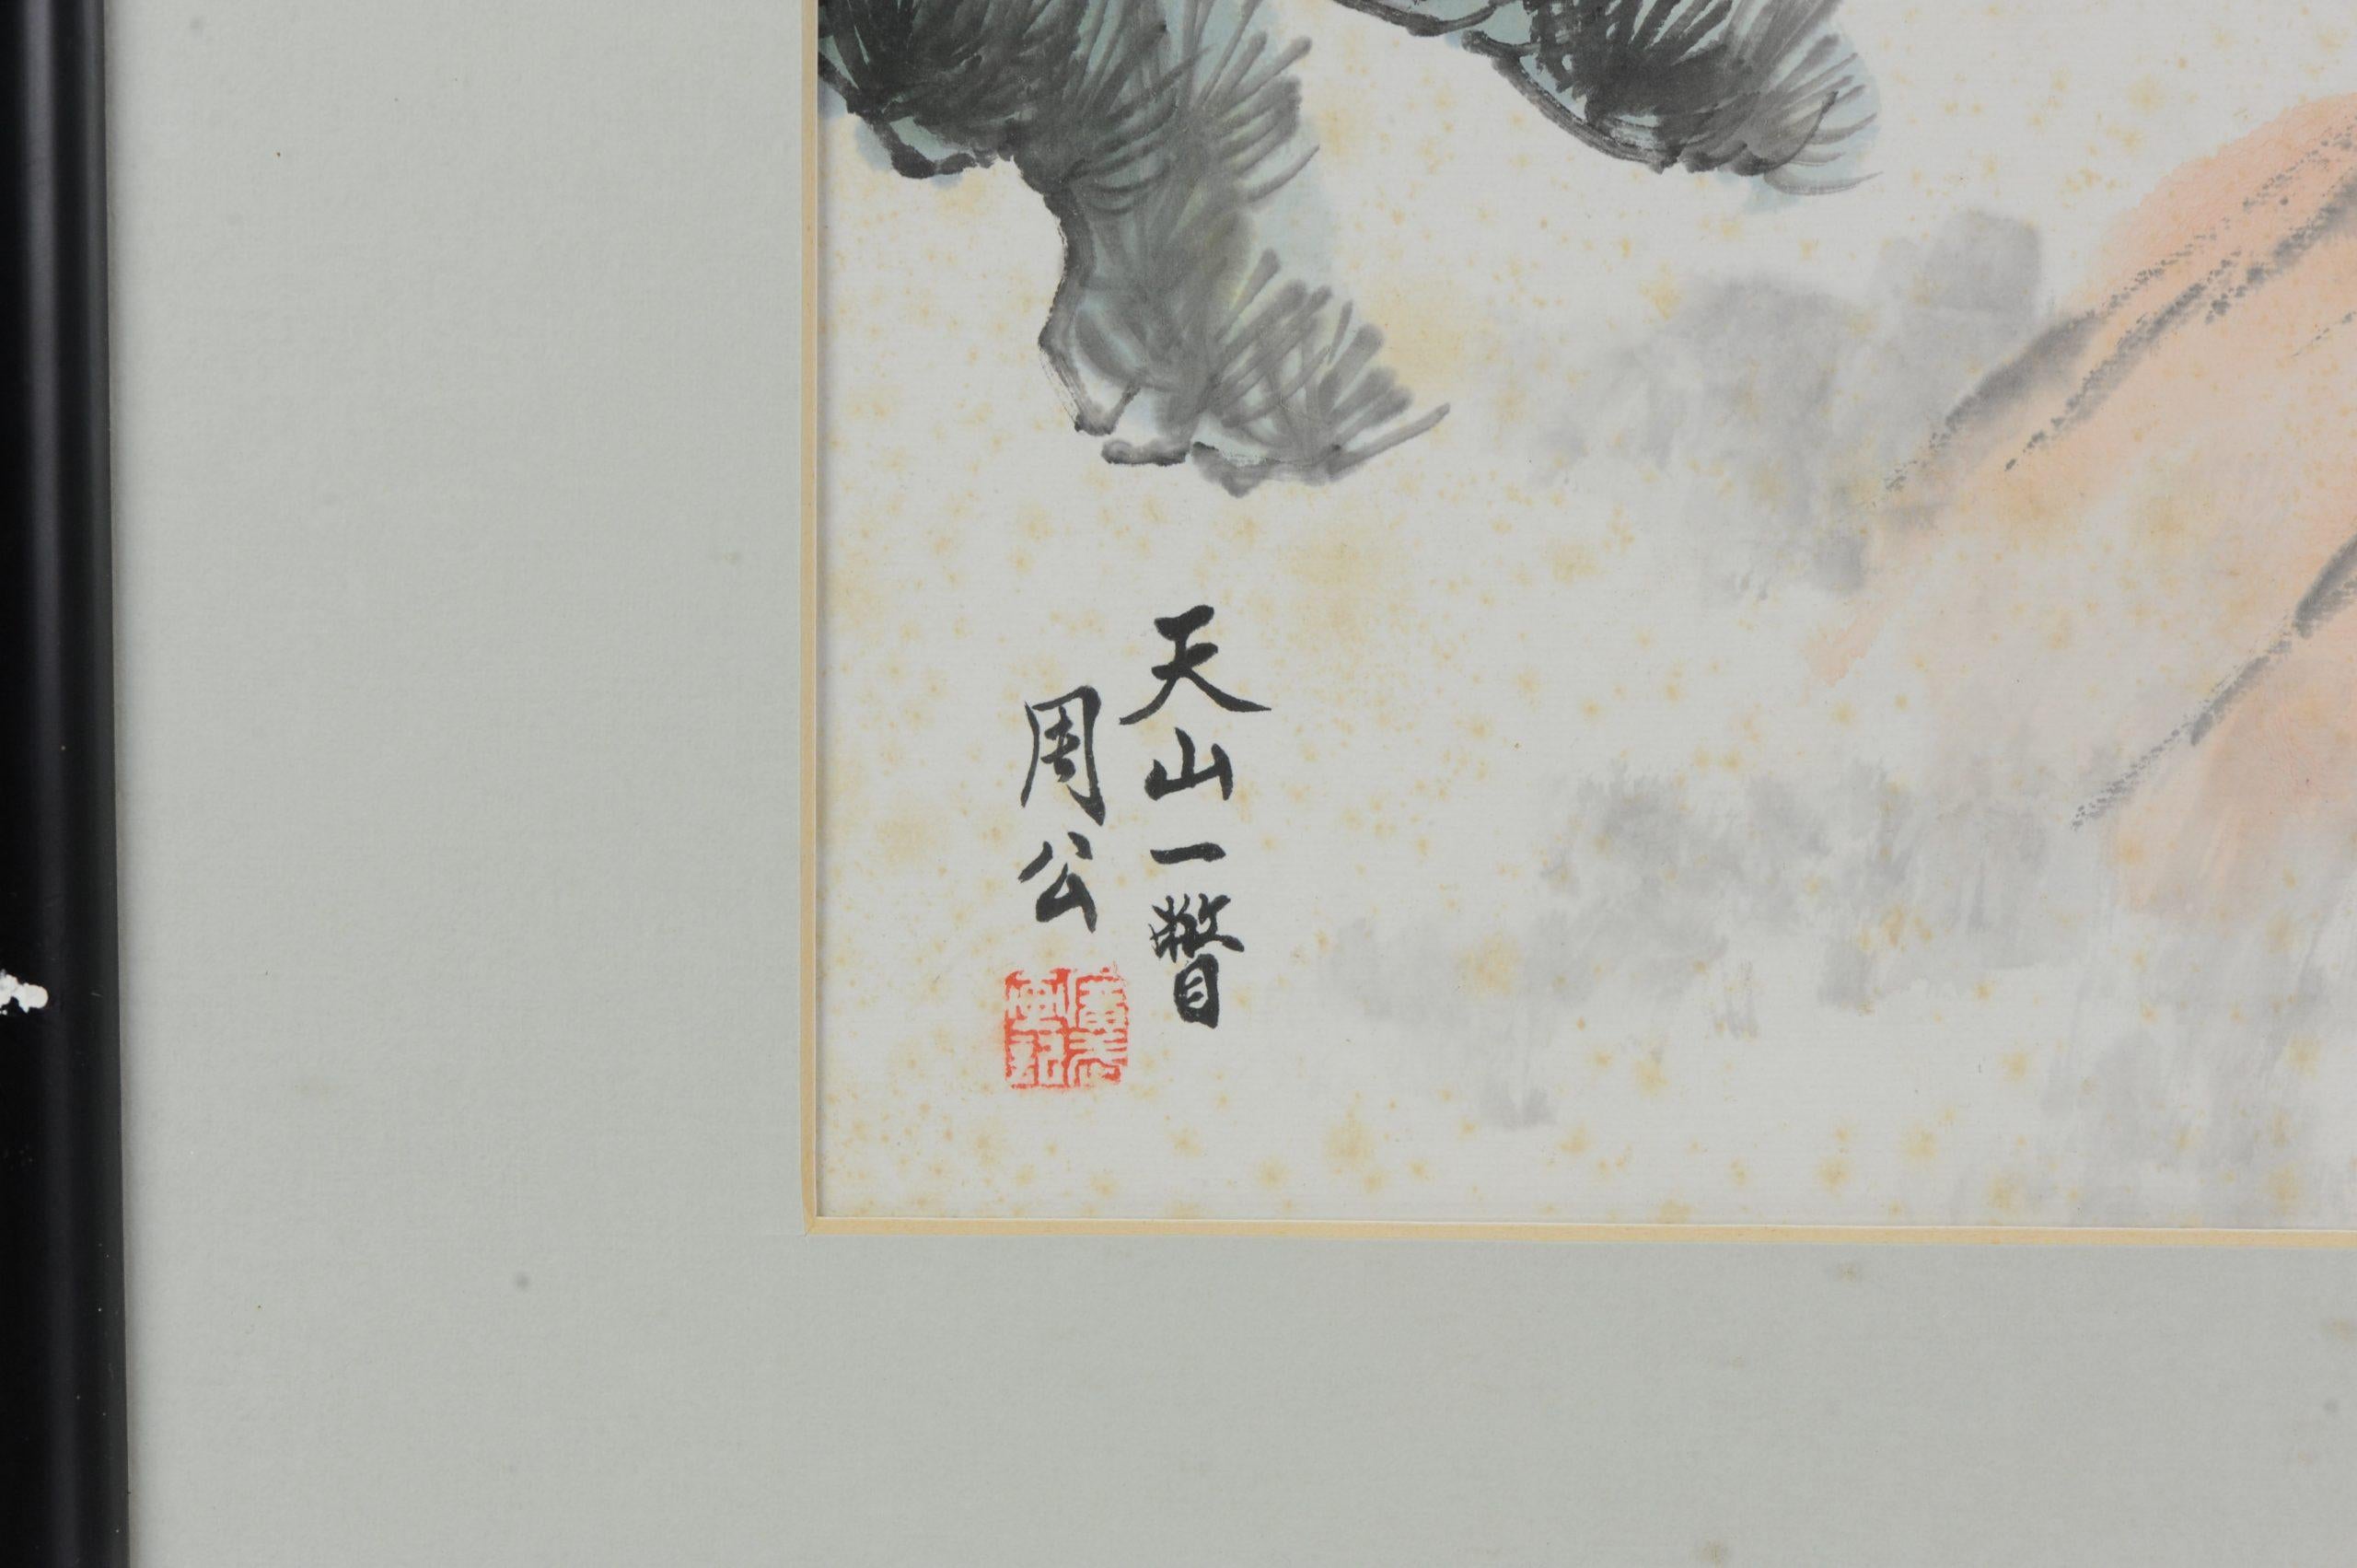 天山一瞥
周公